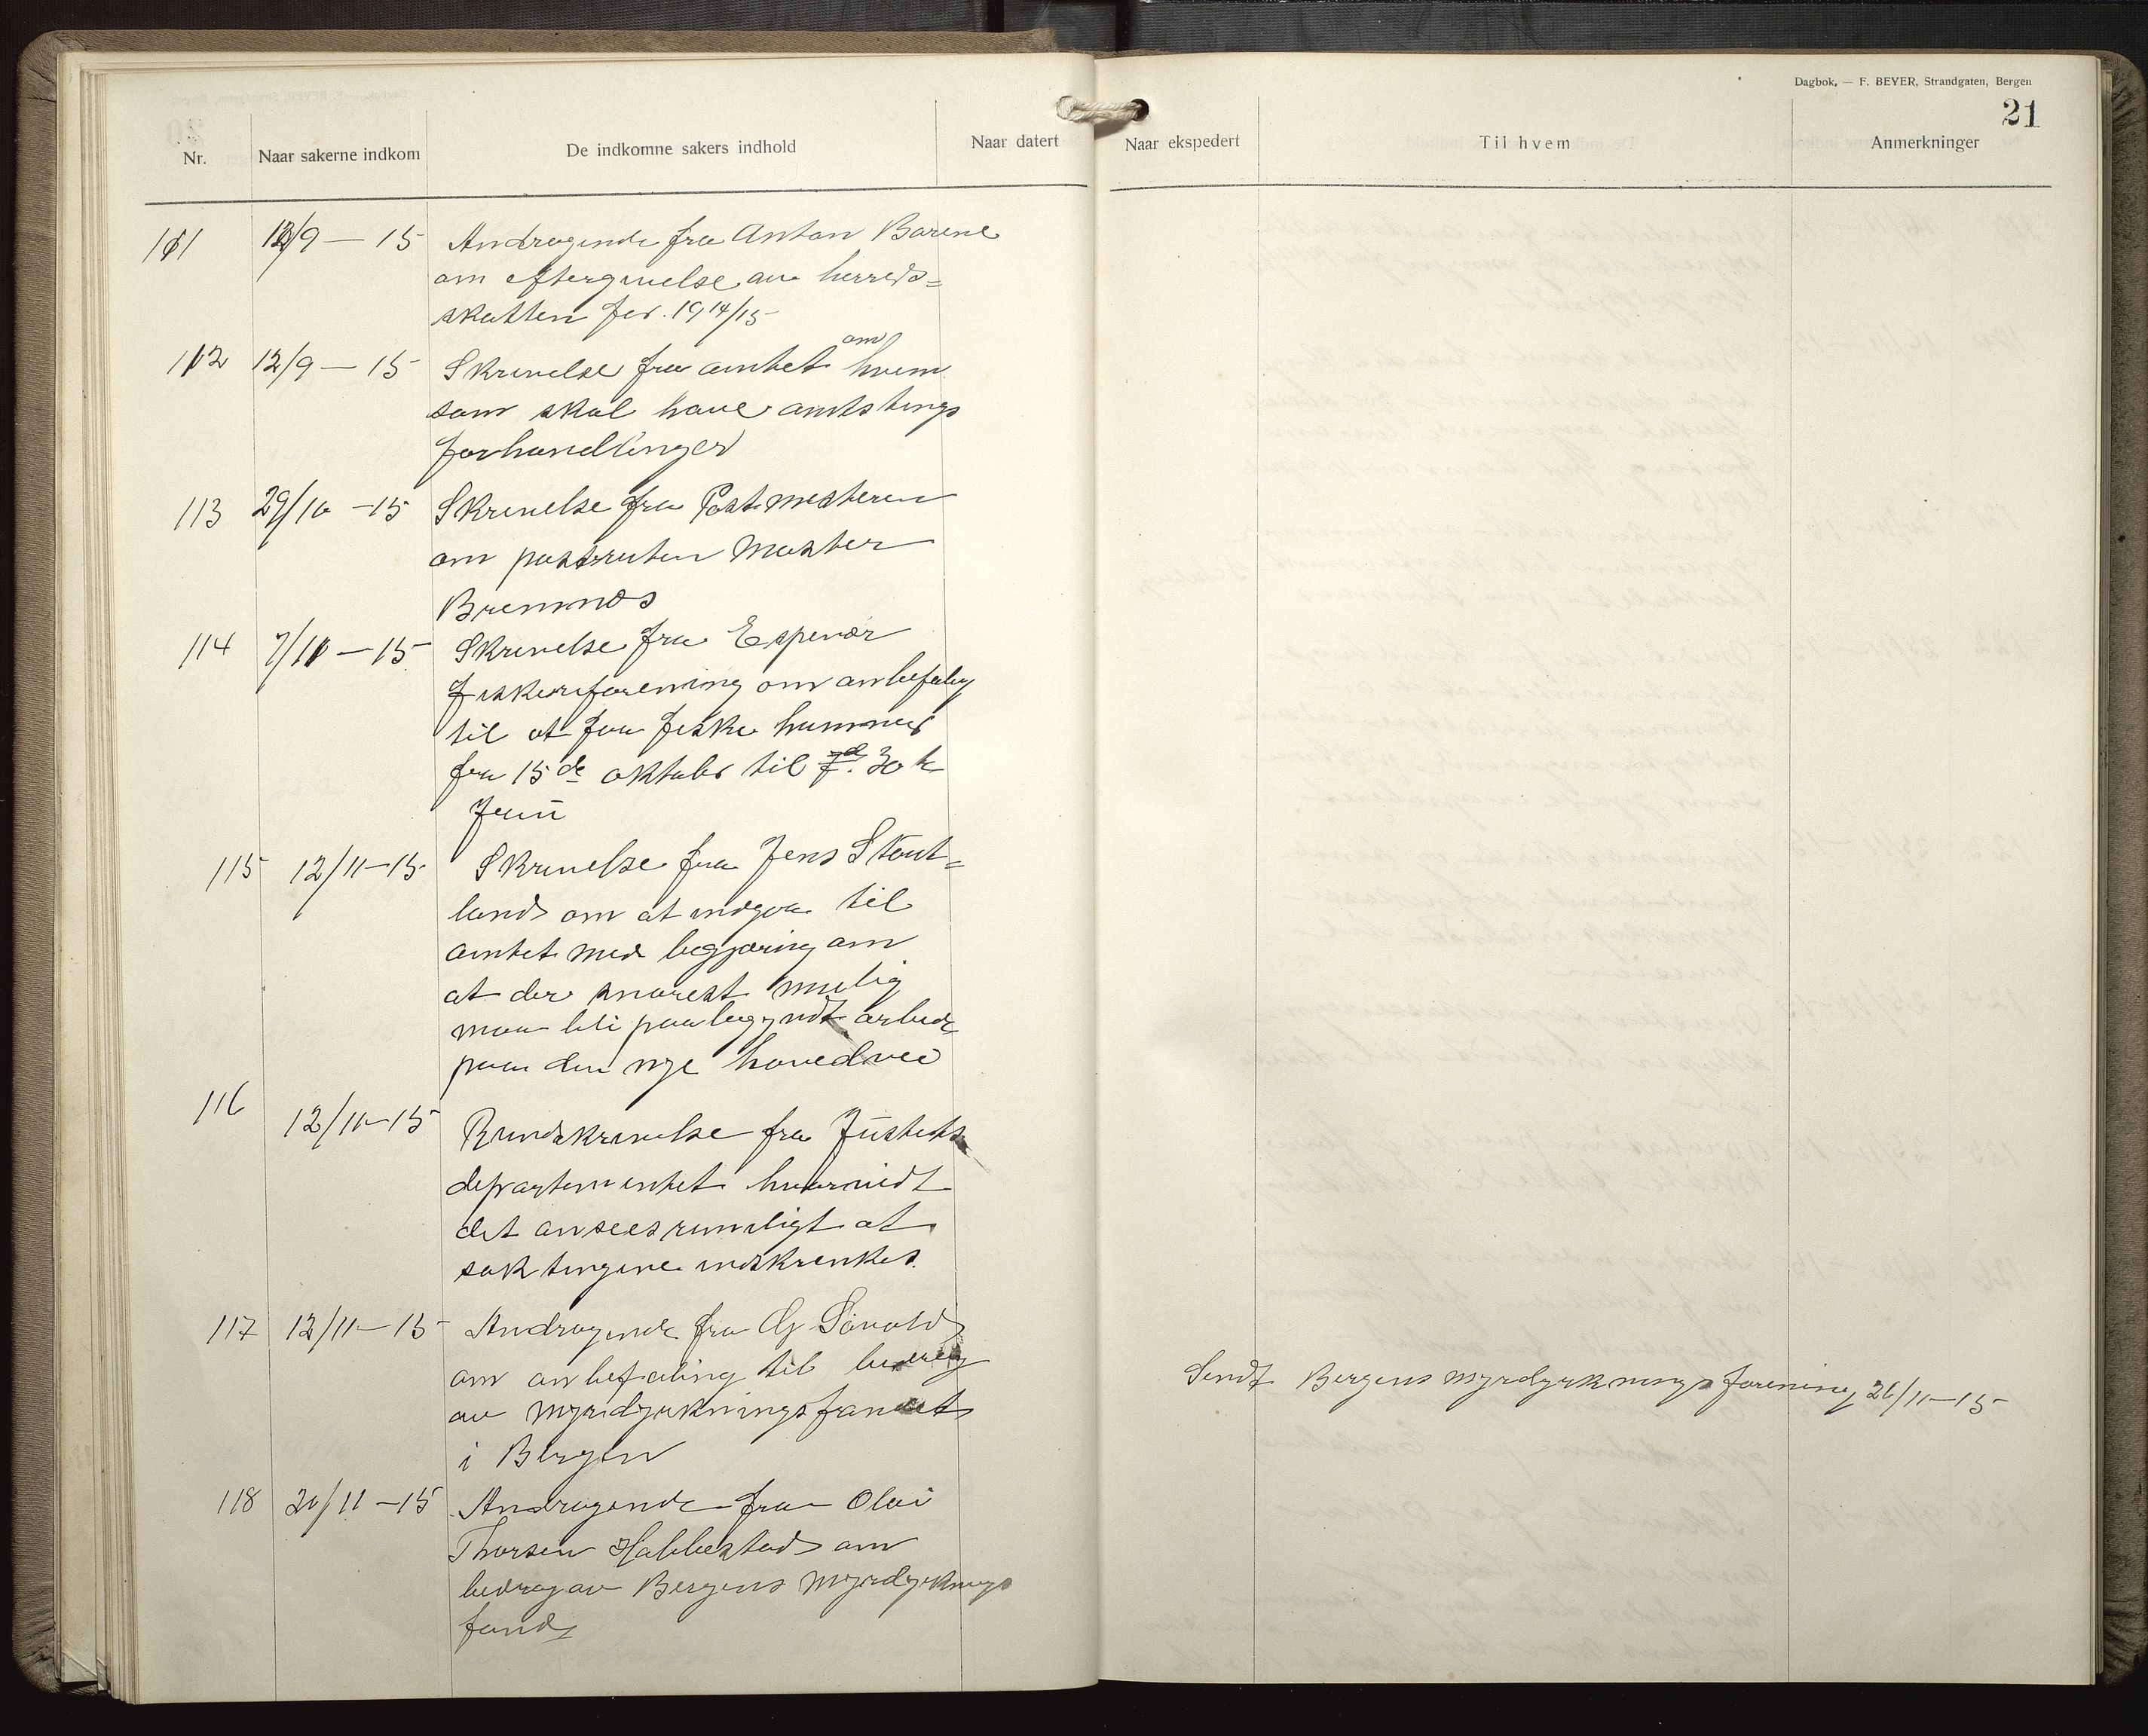 Dagbok. — F. BEYER, Strandgaten, Bergen
21
Nr. Naar sakerne indkom De indkomne sakers indhold Naar datert Naar ekspedert Til hvem Anmerkninger
111 12/9 — 15 Andragende fra Anton Barene
om eftergivelse av herreds=
skatten for 1914/15
112 12/9 — 15 Skrivelse fra amtet om hvem
som skal have amtstings
forhandlinger
113 29/10 — 15 Skrivelse fra Postmesteren
om postruten Moster
Bremnes
114 7/11 — 15 Skrivelse fra Espevær
fiskeriforening om anbefaling
til at faa fiske hummer
fra 15de oktober til 30te
Juni
115 12/11 — 15 Skrivelse fra Jens Stout=
land om at indgaa til
amtet med begjæring om
at der snarest mulig
maa bli paabegyndt arbeide
paa den nye hovedvei
116 12/11 — 15 Rundskrivelse fra Justits
departementet hvormidt
det ansees rimeligt at
saktingene indskrenkes.
117 12/11 — 15 Andragende fra Og Søvold
om anbefaling til bidrag
av myrdyrkningsfondet
i Bergen
Sendt Bergens myrdyrkningsforening 26/11 — 15
118 20/11 — 15 Andragende fra Olai
Thorsen Habbestad om
bidrag av Bergens Myrdyrknings
fond